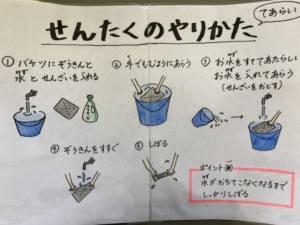 てあらい
せんたくのやりかた
① バケツにぞうきんと
水とせんざいを入れる
② 手でもむようにあらう
③ お水をすててあたらしい
お水を入れてあらう
(せんざいをおとす)
④ ぞうきんをすすぐ
⑤ しぼる
ポイント
水がおちてこなくなるまで
しっかりしぼる